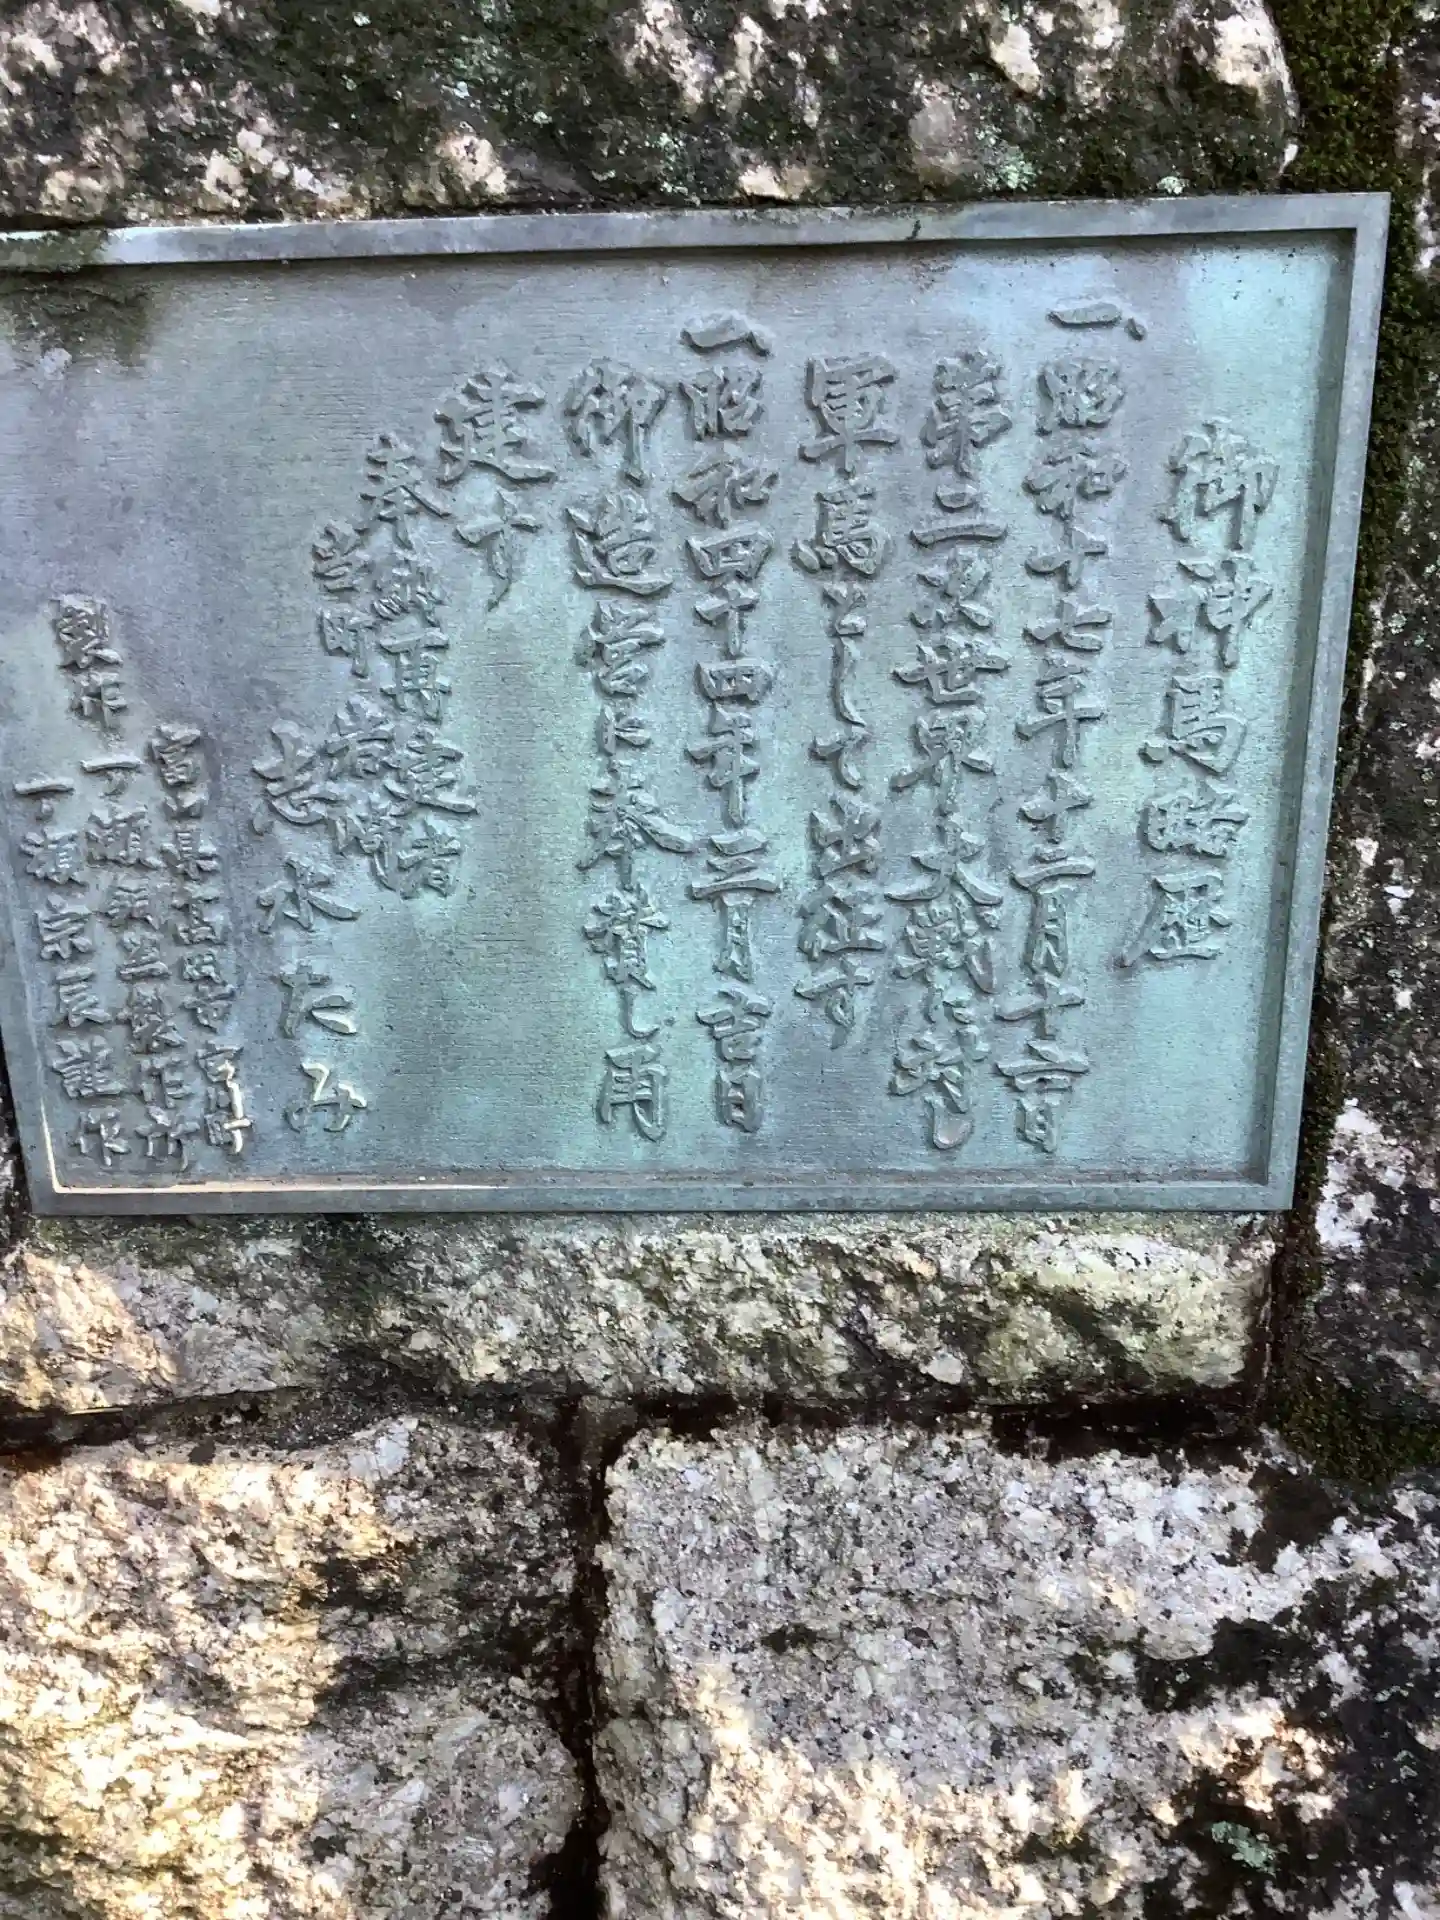 御神馬略歴
一、昭和十七年十二月十六日
第二次世界大戦に対し
軍馬として出征す
一、昭和四十四年三月吉日
御造営に奉賛し再
建す
奉献再建者
当町 岩崎
志水たみ
製作
富山県高岡市宮川町
一瀬銅器製作所
一瀬宗辰謹作